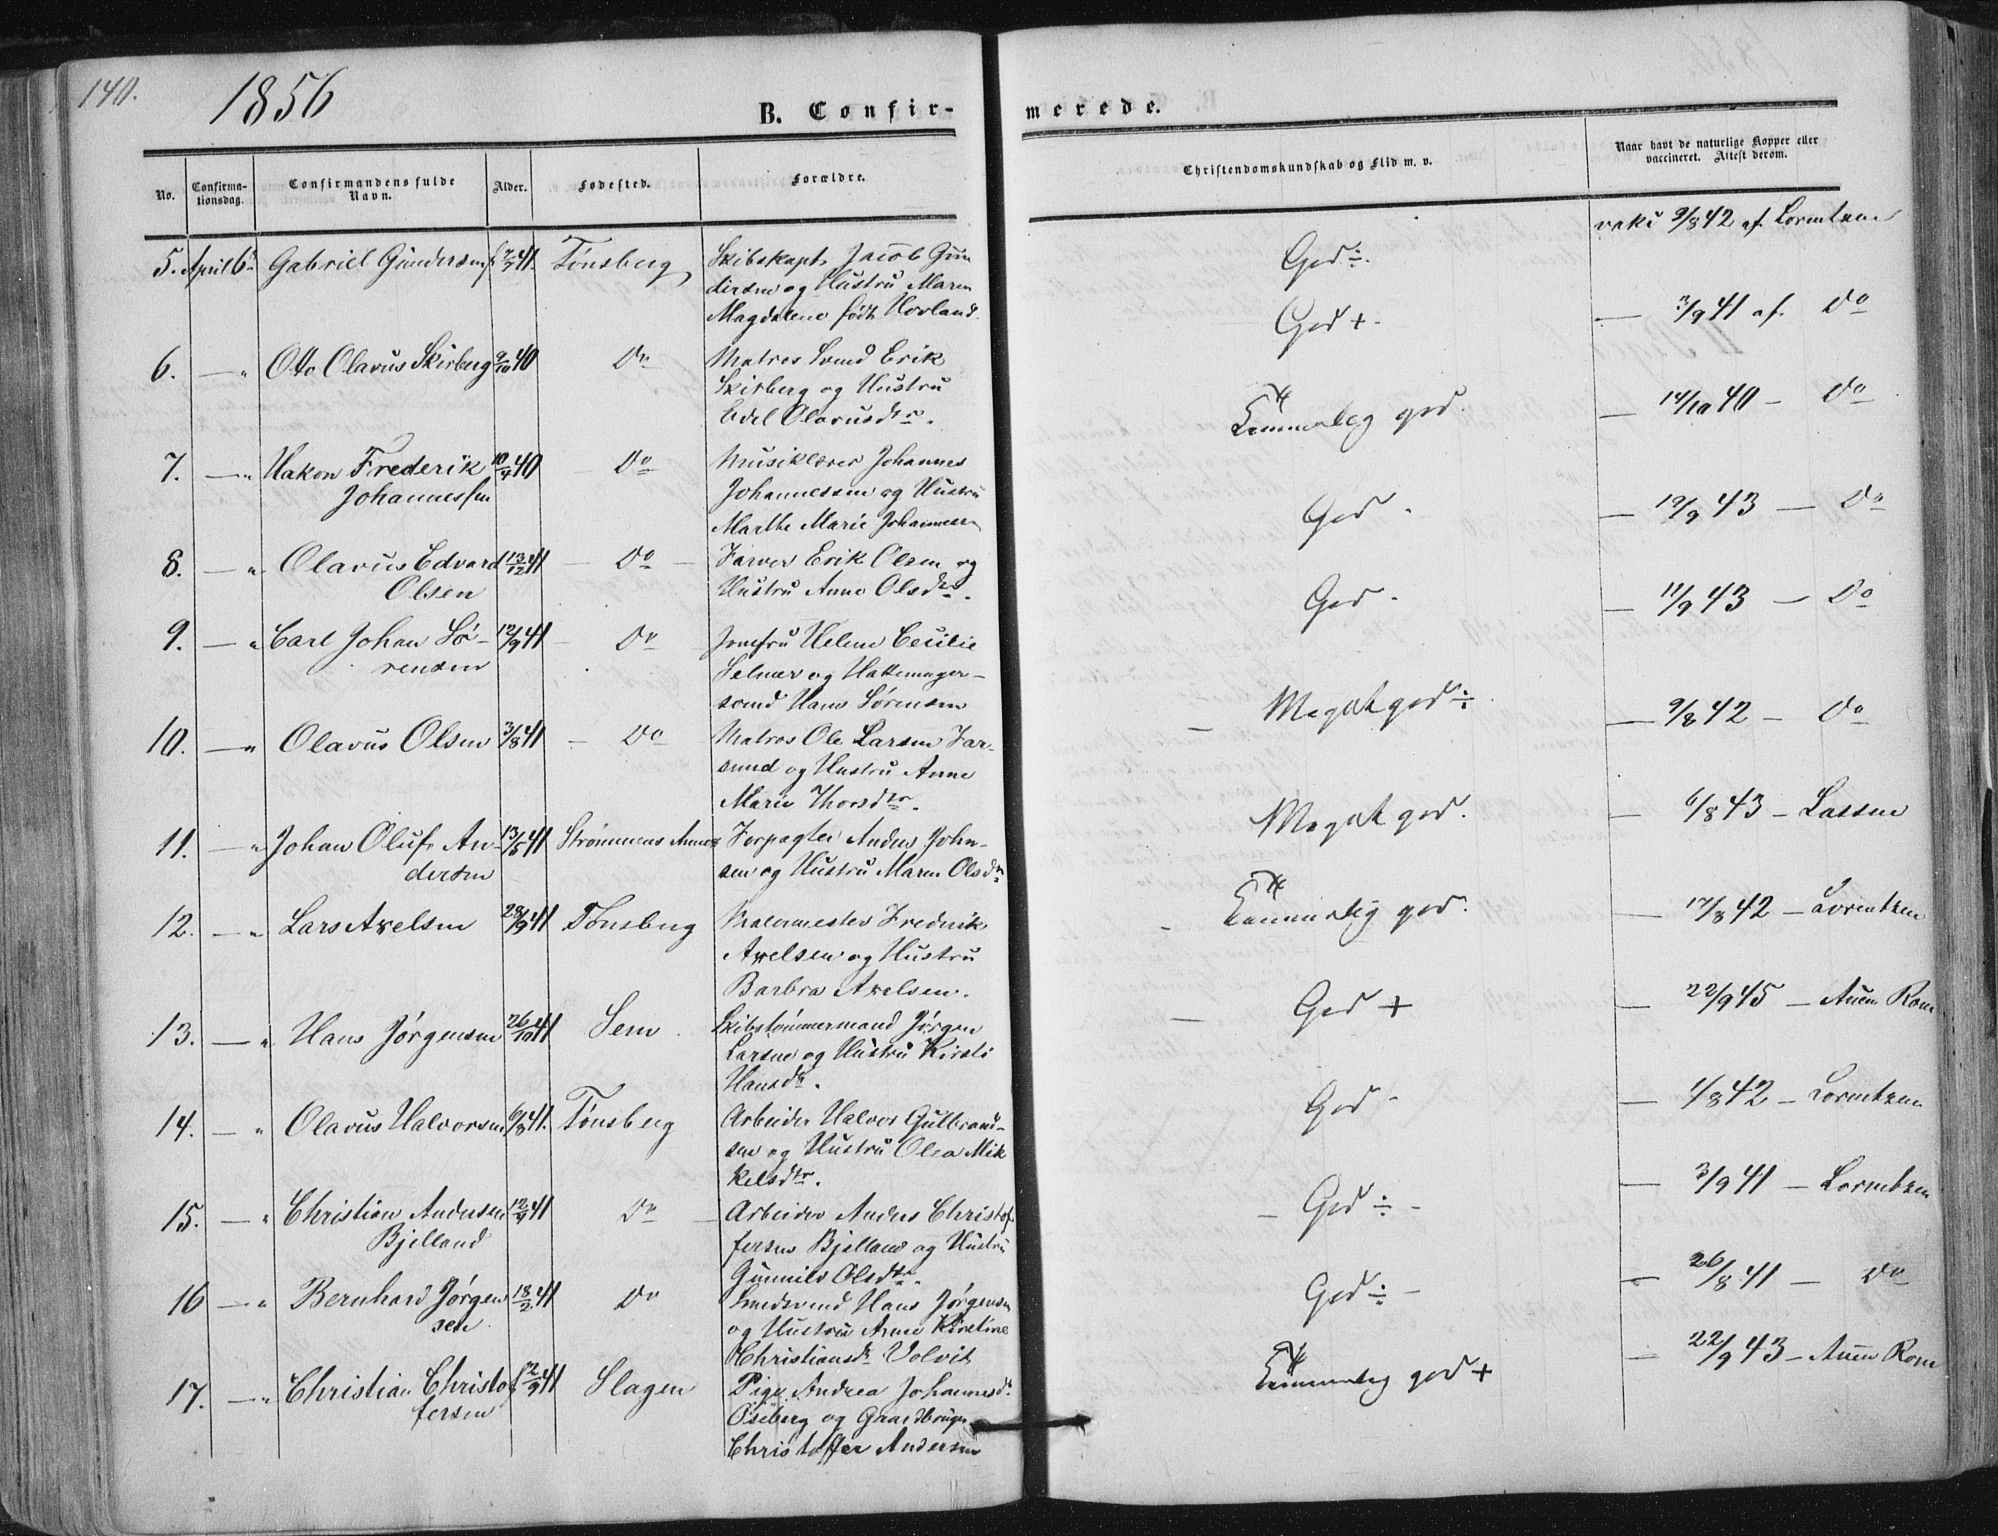 140.
1856
B. Confir-
merede.
No.
Confirma-
tionsdag.
Confirmandens fulde
Navn.
Alder.
Fødested.
Forældre.
Christendomskundskab og Flid m. v.
Naar havt de naturlige Kopper eller
vaccineret. Attest derom.
5. April 6 Gabriel Gundersen 41. Tønsberg Skibskapt. Jacob Gun
dersen og Hustru Maren
Magdalene født Hovland.
God ÷. 9/8 42 af Lorentzen
6. — " Otto Olavus Skirberg 9/10 40 Do Matros Erik
Skirberg og Hustru
Edel Olavusdtr.
God + — 3/9 41 af Do
7. — " Hakon Frederik 10/4 40 Do Musiklærer Johannes
Johannessen Johannessen og Hustru
Marthe Marie Johannessen
Temmelig god. — 14/10 40 — Do
8. — " Olavus Edvard 13/12 41 — Do — Farver Erik Olsen og
Olsen Hustru Anne Olsdtr.
God — 19/9 43 — Do
9. — " Carl Johan Sø- 12/9 41 — Do Jomfru Helene Cecilie
rensen Selmer og Hattemager-
svend Hans Sørensen
God — 11/9 43 — Do
10. — " Olavus Olsen 3/8 41 — Do Matros Ole Larsen Far-
sund og Hustru Anne
Marie Thorsdtr.
— Meget god ÷ — 9/8 42 — Do
11. — " Johan Oluf An- 13/5 41 Strømmens Forpagter Anders John-
dersen sen og Hustru Maren Olsdtr
Meget god. — 6/8 43 — Lassen
12. — " Lars Axelsen 28/9 41 Tønsberg Malermester Frederik
Axelsen og Hustru
Barbra Axelsen.
— Temmelig god. — 17/8 42 — Lorentzen
13. — " Hans Jørgensen 26/10 41 Sem Skibstømmermand Jørgen
Larsen og Hustru Kirsti
Hansdtr.
— God + — 22/9 45 — Rom
14. — " Olavus Halvorsen 6/8 41. Tønsberg Arbeider Halvor Gulbrand-
sen og Hustru Olea Mik
kelsdtr.
God — 1/8 42 — Lorentzen
15. — " Christian Andersen 12/4 41 Do — Arbeider Anders Christof
Bjelland fersen Bjelland og Hustru
Gunnild Olsdtr.
— God ÷ — — 3/9 41 — Lorentzen
16 — " Bernhard Jørgen 18/2 41 Do Smedsvend Hans Jørgensen
sen og Hustru Anne Kirstine
Christiansdtr
God ÷ — — 26/8 41 — Do
17. — " Christian Christof 41 Slagen Pige Andrea Johannesdtr
fersen Oseberg og Gaardbruger
Christoffer Andersen
Temmelig god + — 22/9 43 — Rom